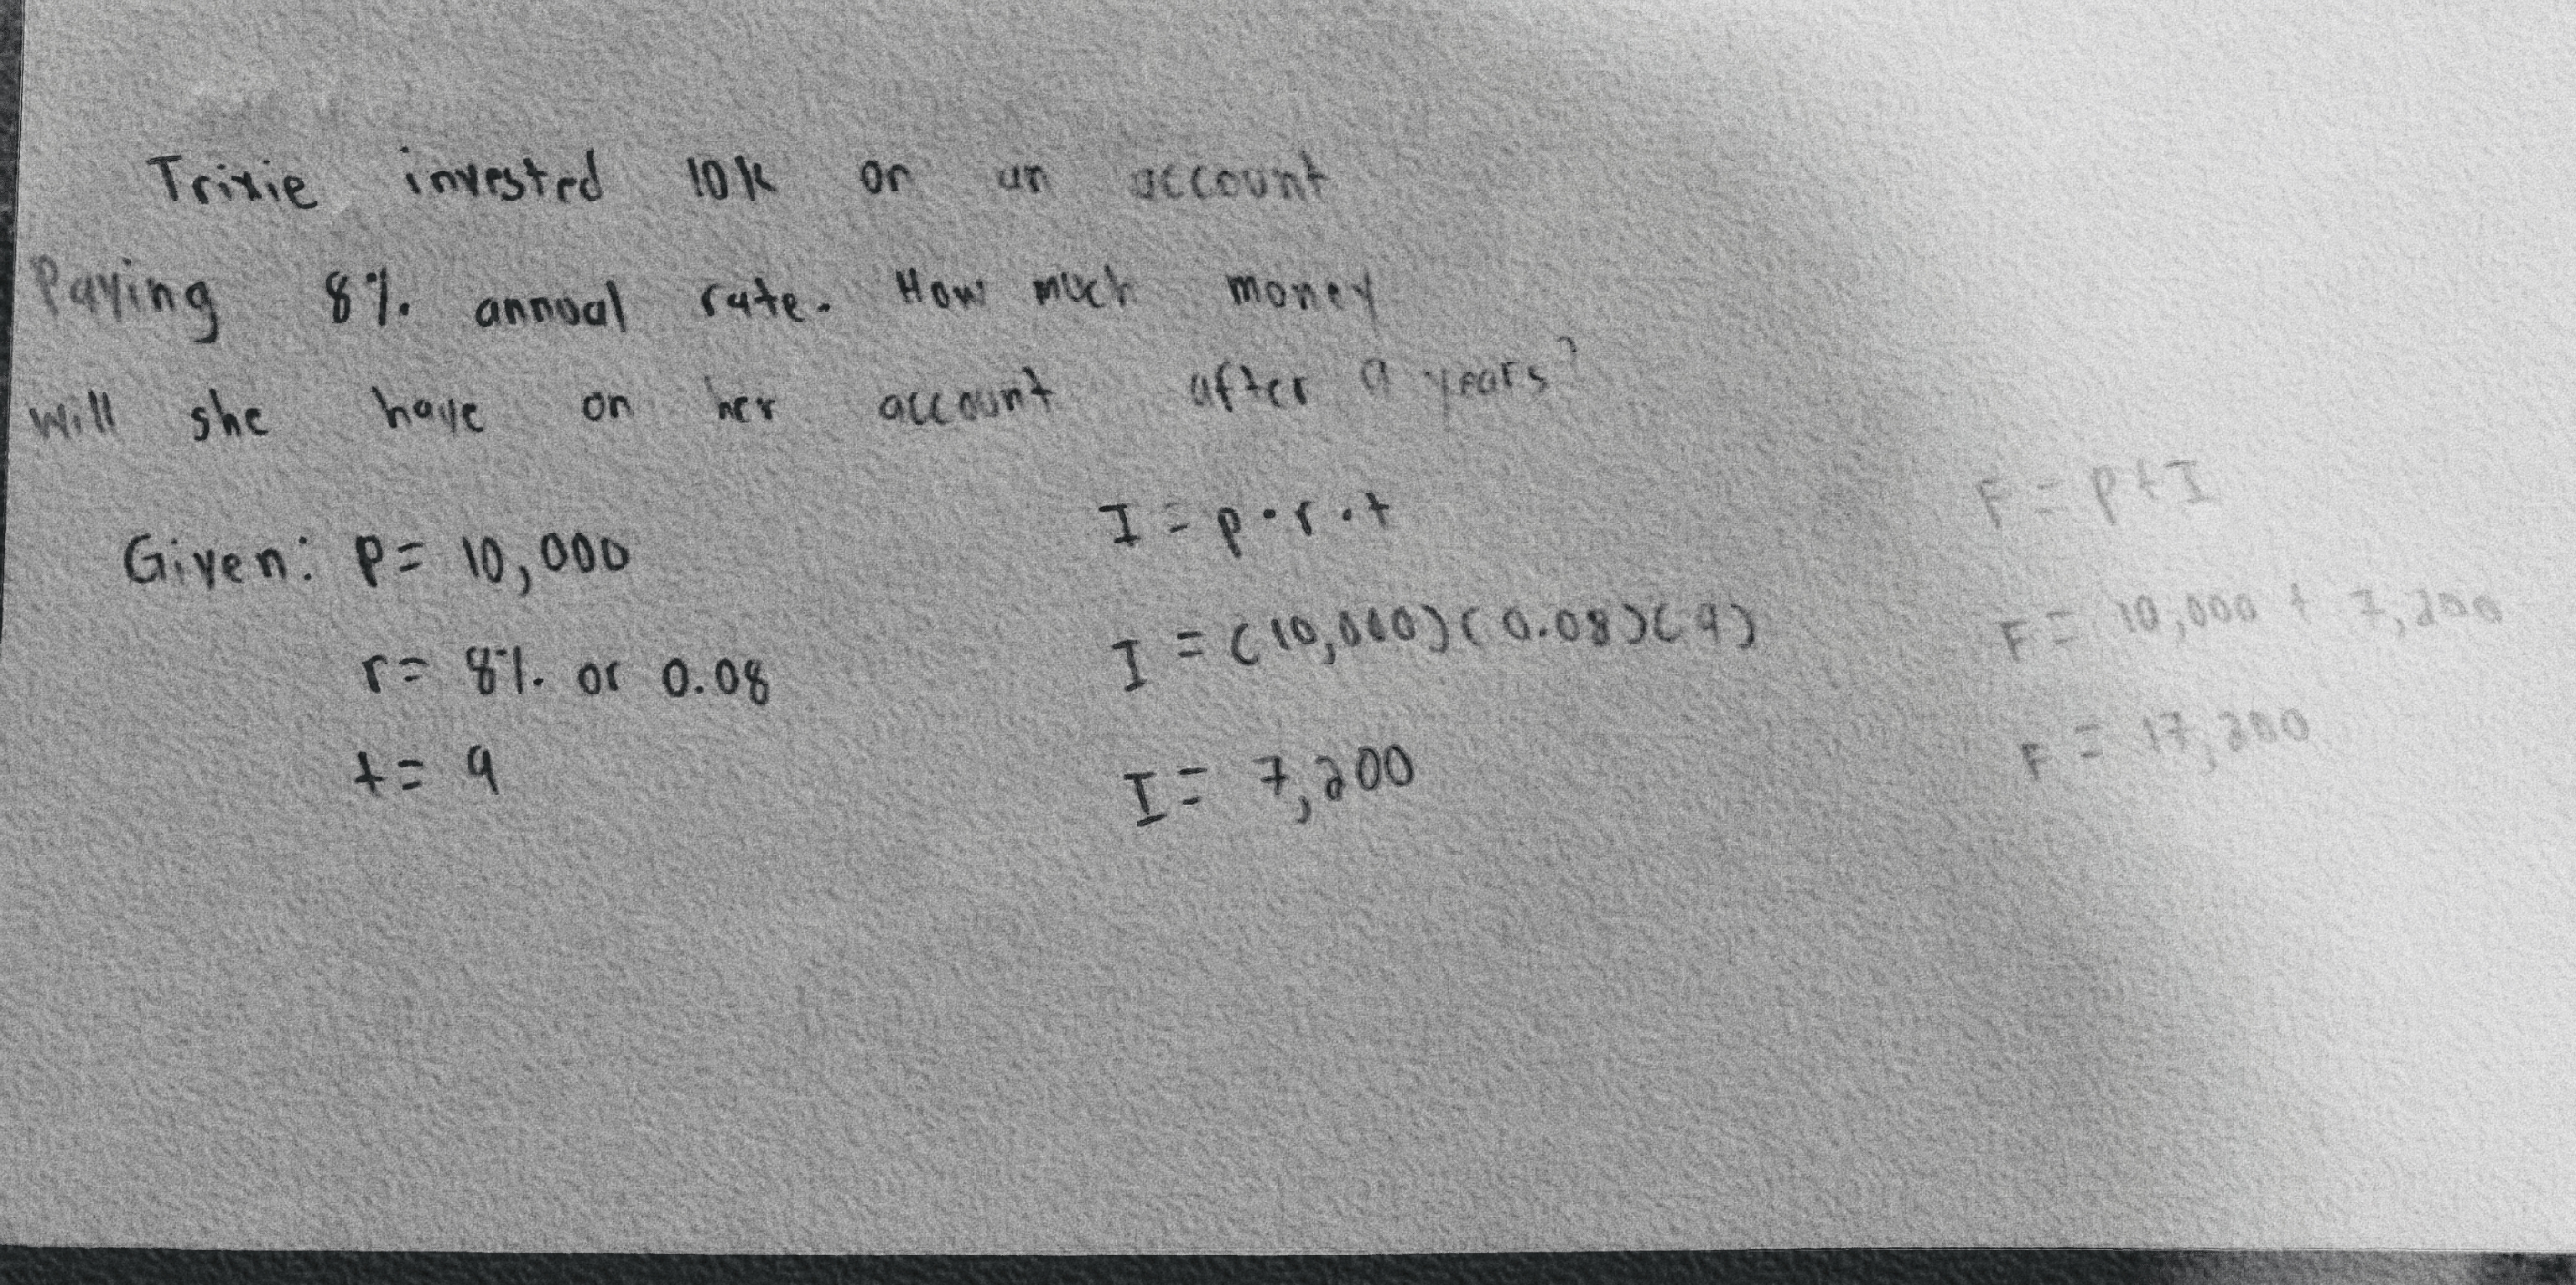 Trixie invested 10k on an account
Paying 8% annual rate. How much money
will she have on her account after 9 years?
Given: P = 10,000
r = 8% or 0.08
t = 9
I = p · r · t
I = (10,000)(0.08)(9)
I = 7,200
F = P + I
F = 10,000 + 7,200
F = 17,200